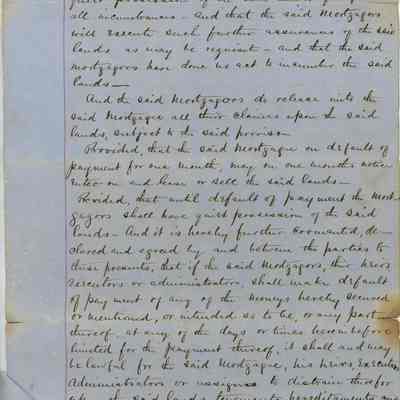 quiet possession of the said lands free from
all incumbrances - and that the said Mortgagors
will execute such further assurances of the said
lands as may be requisite - and that the said
mortgagors have done no act to incumber the said
lands -
And the said Mortgagors do release unto the
said Mortgagee all their claims upon the said
lands, subject to the said proviso -
Provided, that the said Mortgagee on default of
payment for one month, may on one months notice
enter on and lease or sell the said lands -
Provided, that until default of payment the Mort-
gagors shall have quiet possession of the said
lands - And it is hereby further covenanted, de-
clared and agreed by and between the parties to
these presents, that if the said Mortgagors, their heirs
executors or administrators, shall make default
of payment of any of the moneys hereby secured
or mentioned, or intended so to be, or any part
thereof, at any of the days or times hereinbefore
limited for the payment thereof, it shall and may
be lawful for the said Mortgagee, his heirs, Executors
Administrators or assigns to distrain therefor
the said lands tenements hereditaments and